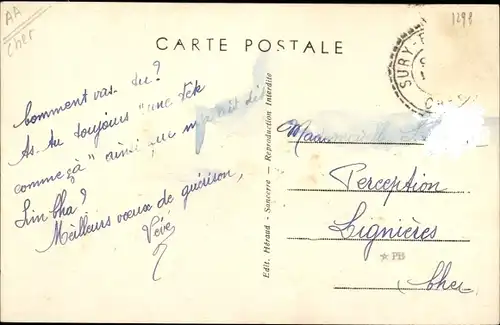 AA
Cher
1299
CARTE POSTALE
SURY-
Comment vas-tu?
As-tu toujours "une tête
comme çà" ainsi que
Lin-bha?
Meilleurs vœux de guérison,
Vévé
Edit. Héraud - Sancerre - Reproduction Interdite
Perception
Lignières
★ PB
Cher